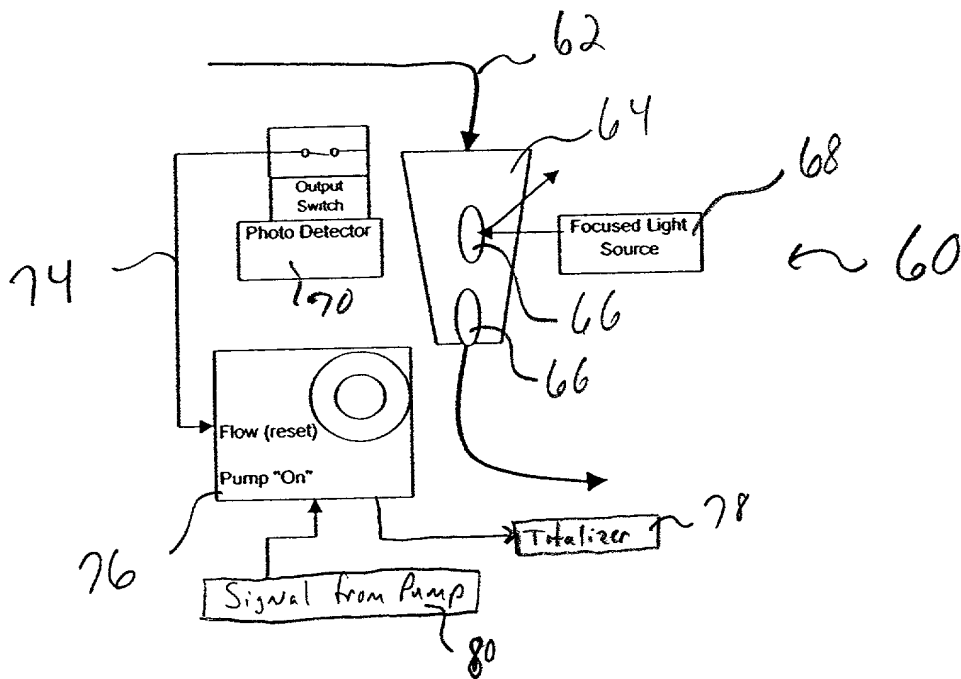 62
64
68
Output
Switch
Photo Detector
Focused Light
Source
60
74
70
66
66
Flow (reset)
Pump "On"
78
Totalizer
76
Signal from Pump
80